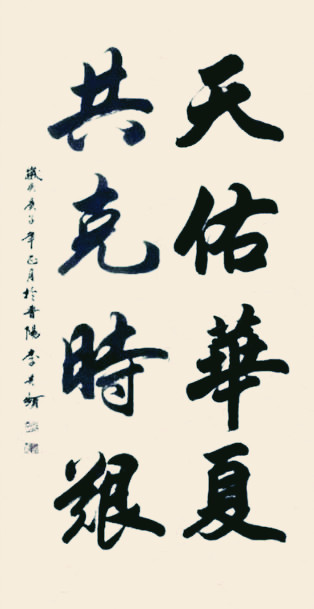 天佑華夏
共克時艱
歲次庚子年正月於晋陽李